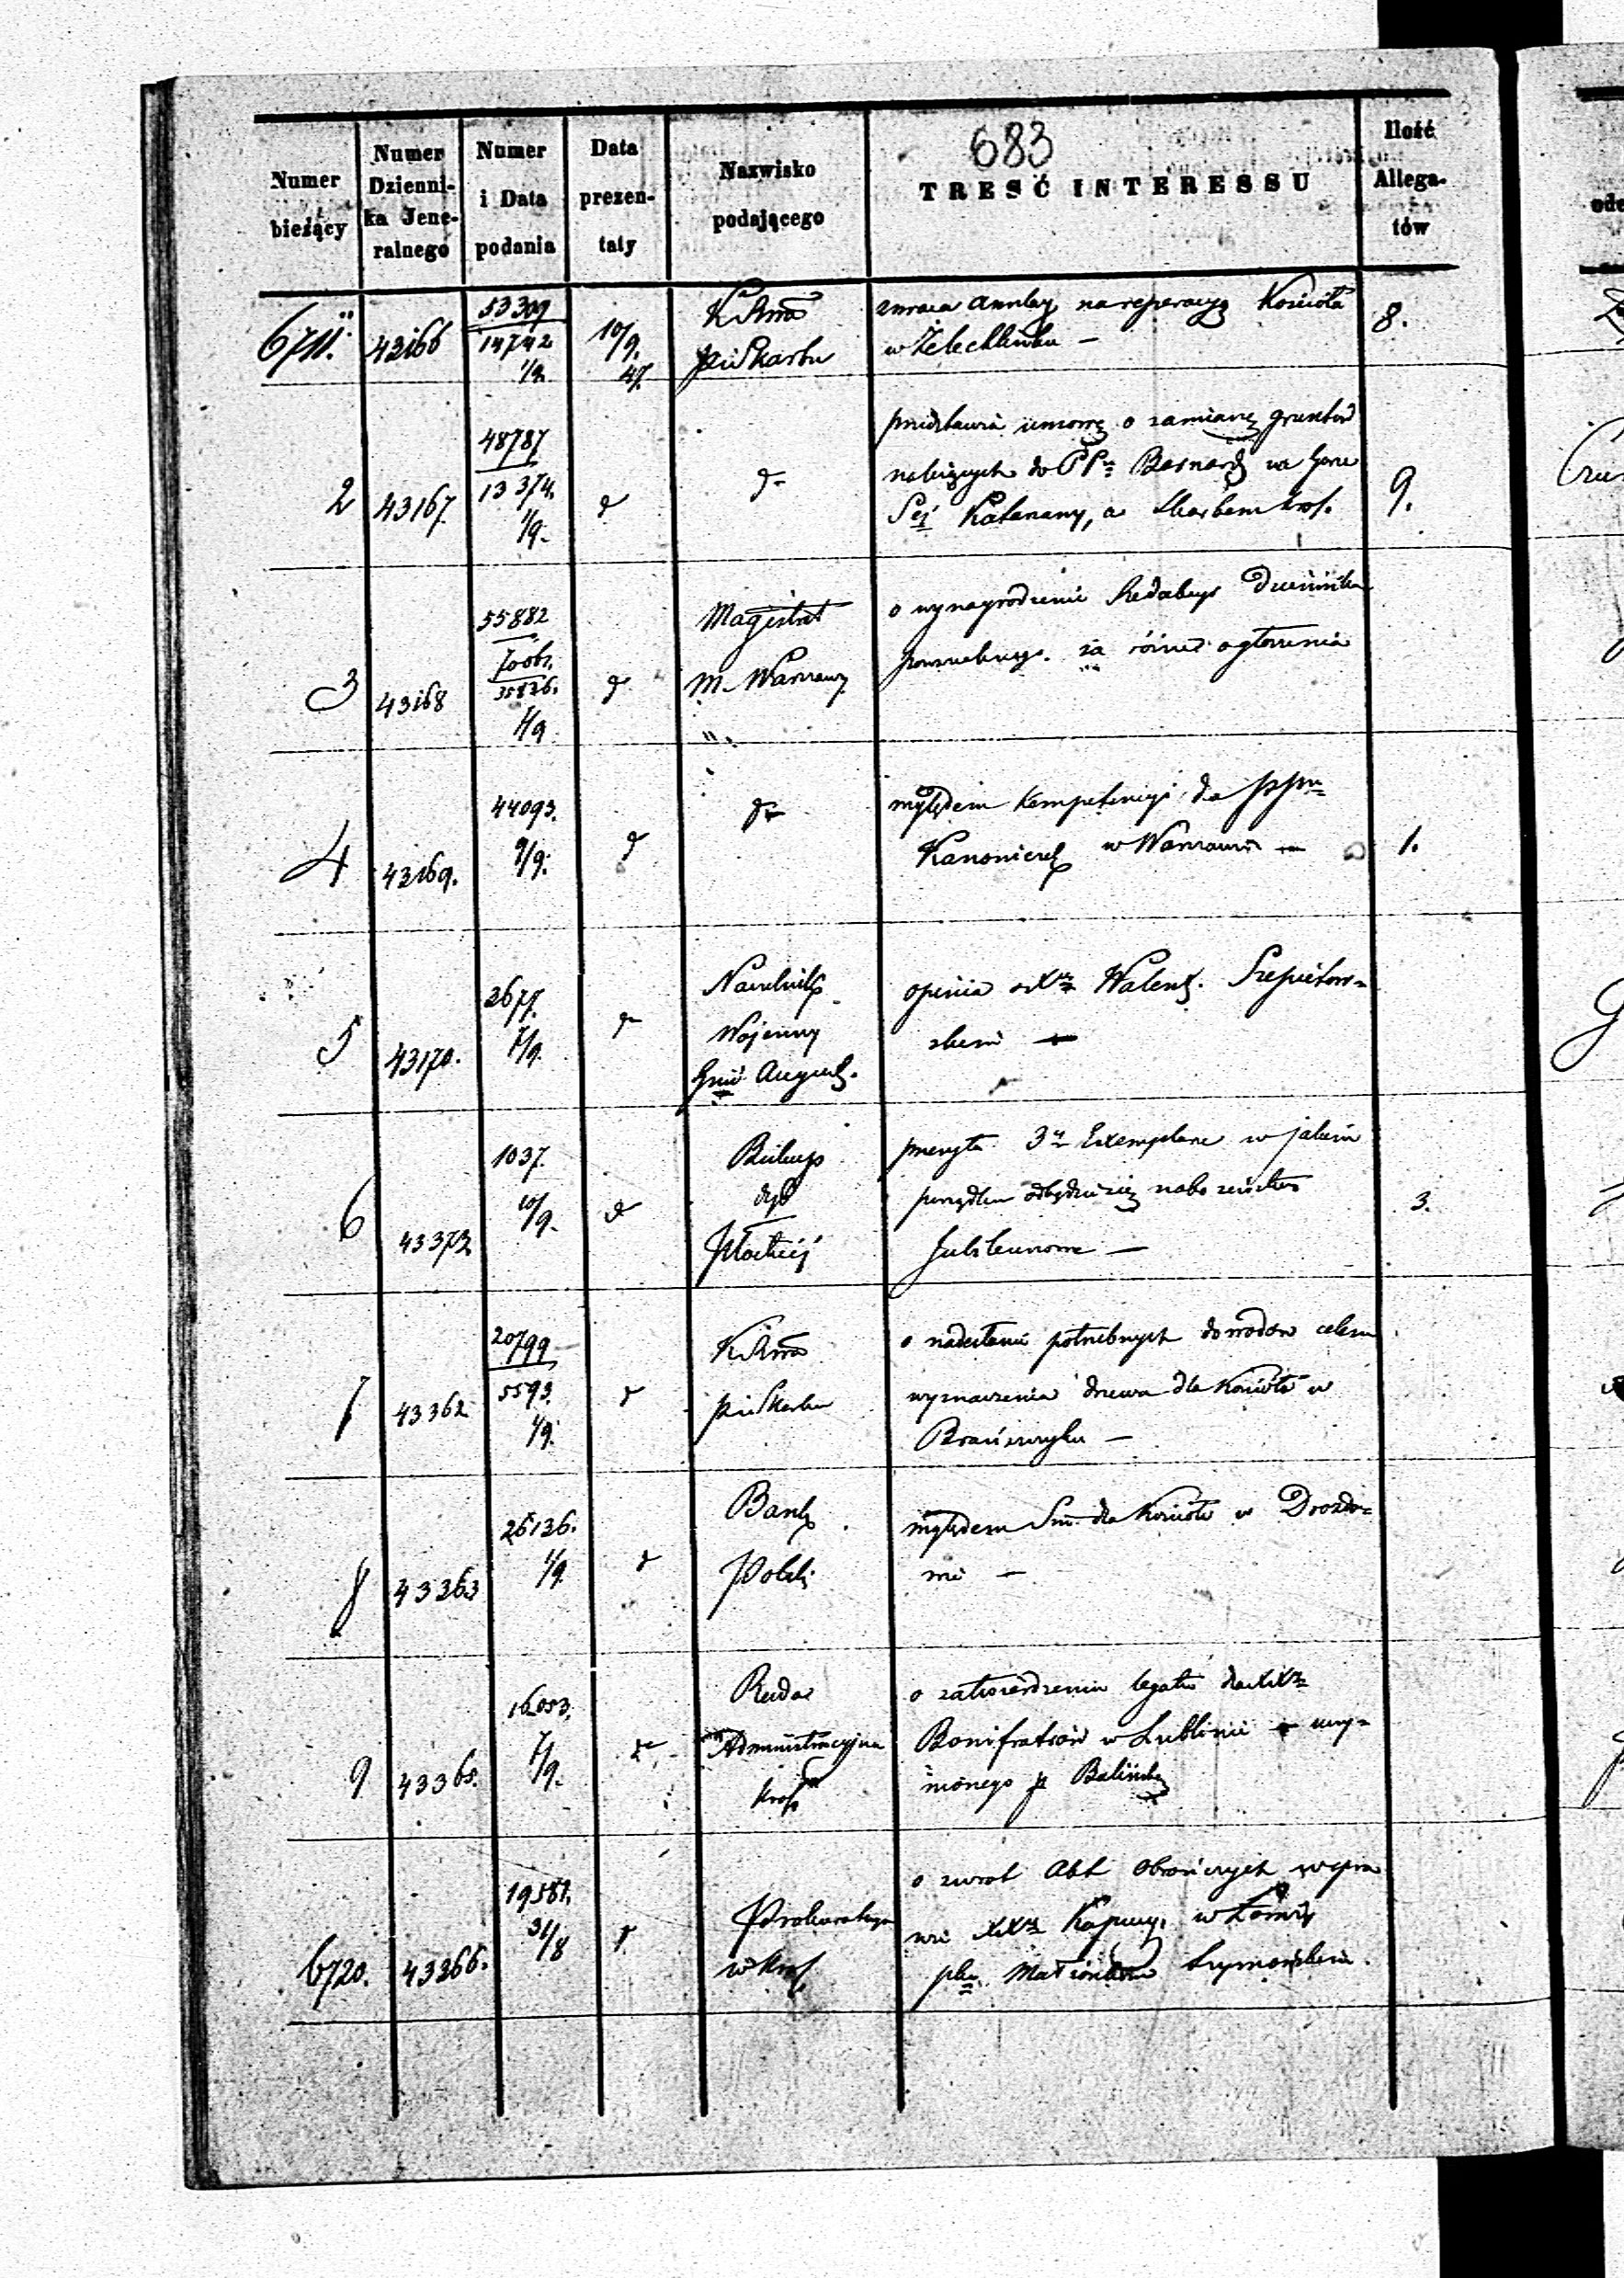 683
Numer bieżący | Numer Dziennika Jeneralnego | Numer i Data podania | Data prezentaty | Nazwisko podającego | TREŚĆ INTERESSU | Ilość Allegatów
6711. 43166 53309 14742 1/9. 10/9. 47. K R
p i Skarbu
zwraca anszlag na reperacyą Kościoła
w Żelechlinku — 8.
2 43167. 48787 13374. 1/9. d d
przedstawia umowę o zamianę gruntów
należących do PP Bernard. na Górze
Sej Katarzany, a Skarbem Król. 9.
3 43168 55882 35836. 7/9 d
Magistrat
M. Warszawy
o wynagrodzenie Redakcyi Dziennika
powszechnego. za różne ogłoszenia
4 43169. 44093. 9/9. d d
względem Kompetencyi dla pp
Kanoniczek w Warszawie — 1.
5 43170. 2677. 7/9. d
Naczelnik
Wojenny
Gnii August.
opinia o X Walent. Szepietow-
skim —
6 43373 1037. 10/9. d
Biskup
dyć
Płockiéj
przesyła 3 Exemplarze w jakim
porządku odbędzie się nabożeństwo
Jubileuszowe — 3.
7 43362 20799 5593. 4/9. d
K R
p i Skarbu
o nadesłanie potrzebnych dowodów celem
wyznaczenia drzewa dla Kościoła w
Brańszczyku —
8 43363 26136. 1/9. d
Bank
Polski
względem Sm dla Kościoła w Drozdo-
wie —
9 43365. 16053. 7/9. d
Rada
Administracyjna
Król
o zatwierdzenie legatu dla XX
Bonifratrów w Lublinie uczy-
nionego p Baliński
6720. 43366. 19581. 31/8 d
Prokuratorya
w Król.
o zwrot Akt obrończych w spra
wie XX Kapucy. w Łomży
pko Małżonkom Szymańskim.